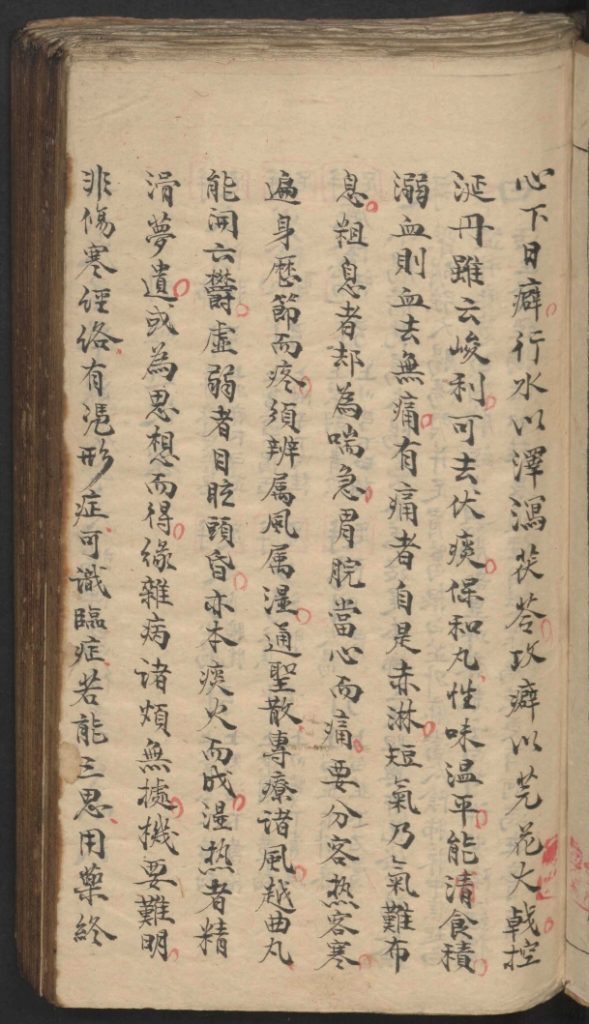 心下曰癖行水以澤瀉茯苓攻癖以芫花大戟控
涎丹雖云峻利可去伏痰保和丸性味温平能清食積
溺血則血去無痛有痛者自是赤淋短氣乃氣難布
息粗息者却為喘急胃脘當心而痛要分客热客寒
遍身歷節而疼須辨属風属湿通聖散專療诸風越曲丸
能開六鬱虚弱者目眩頭昏亦本痰火而成湿热者精
滑夢遺或為思想而得缘雜病诸煩無據機要難明
非傷寒经络有迹形症可識臨症若能三思用藥終